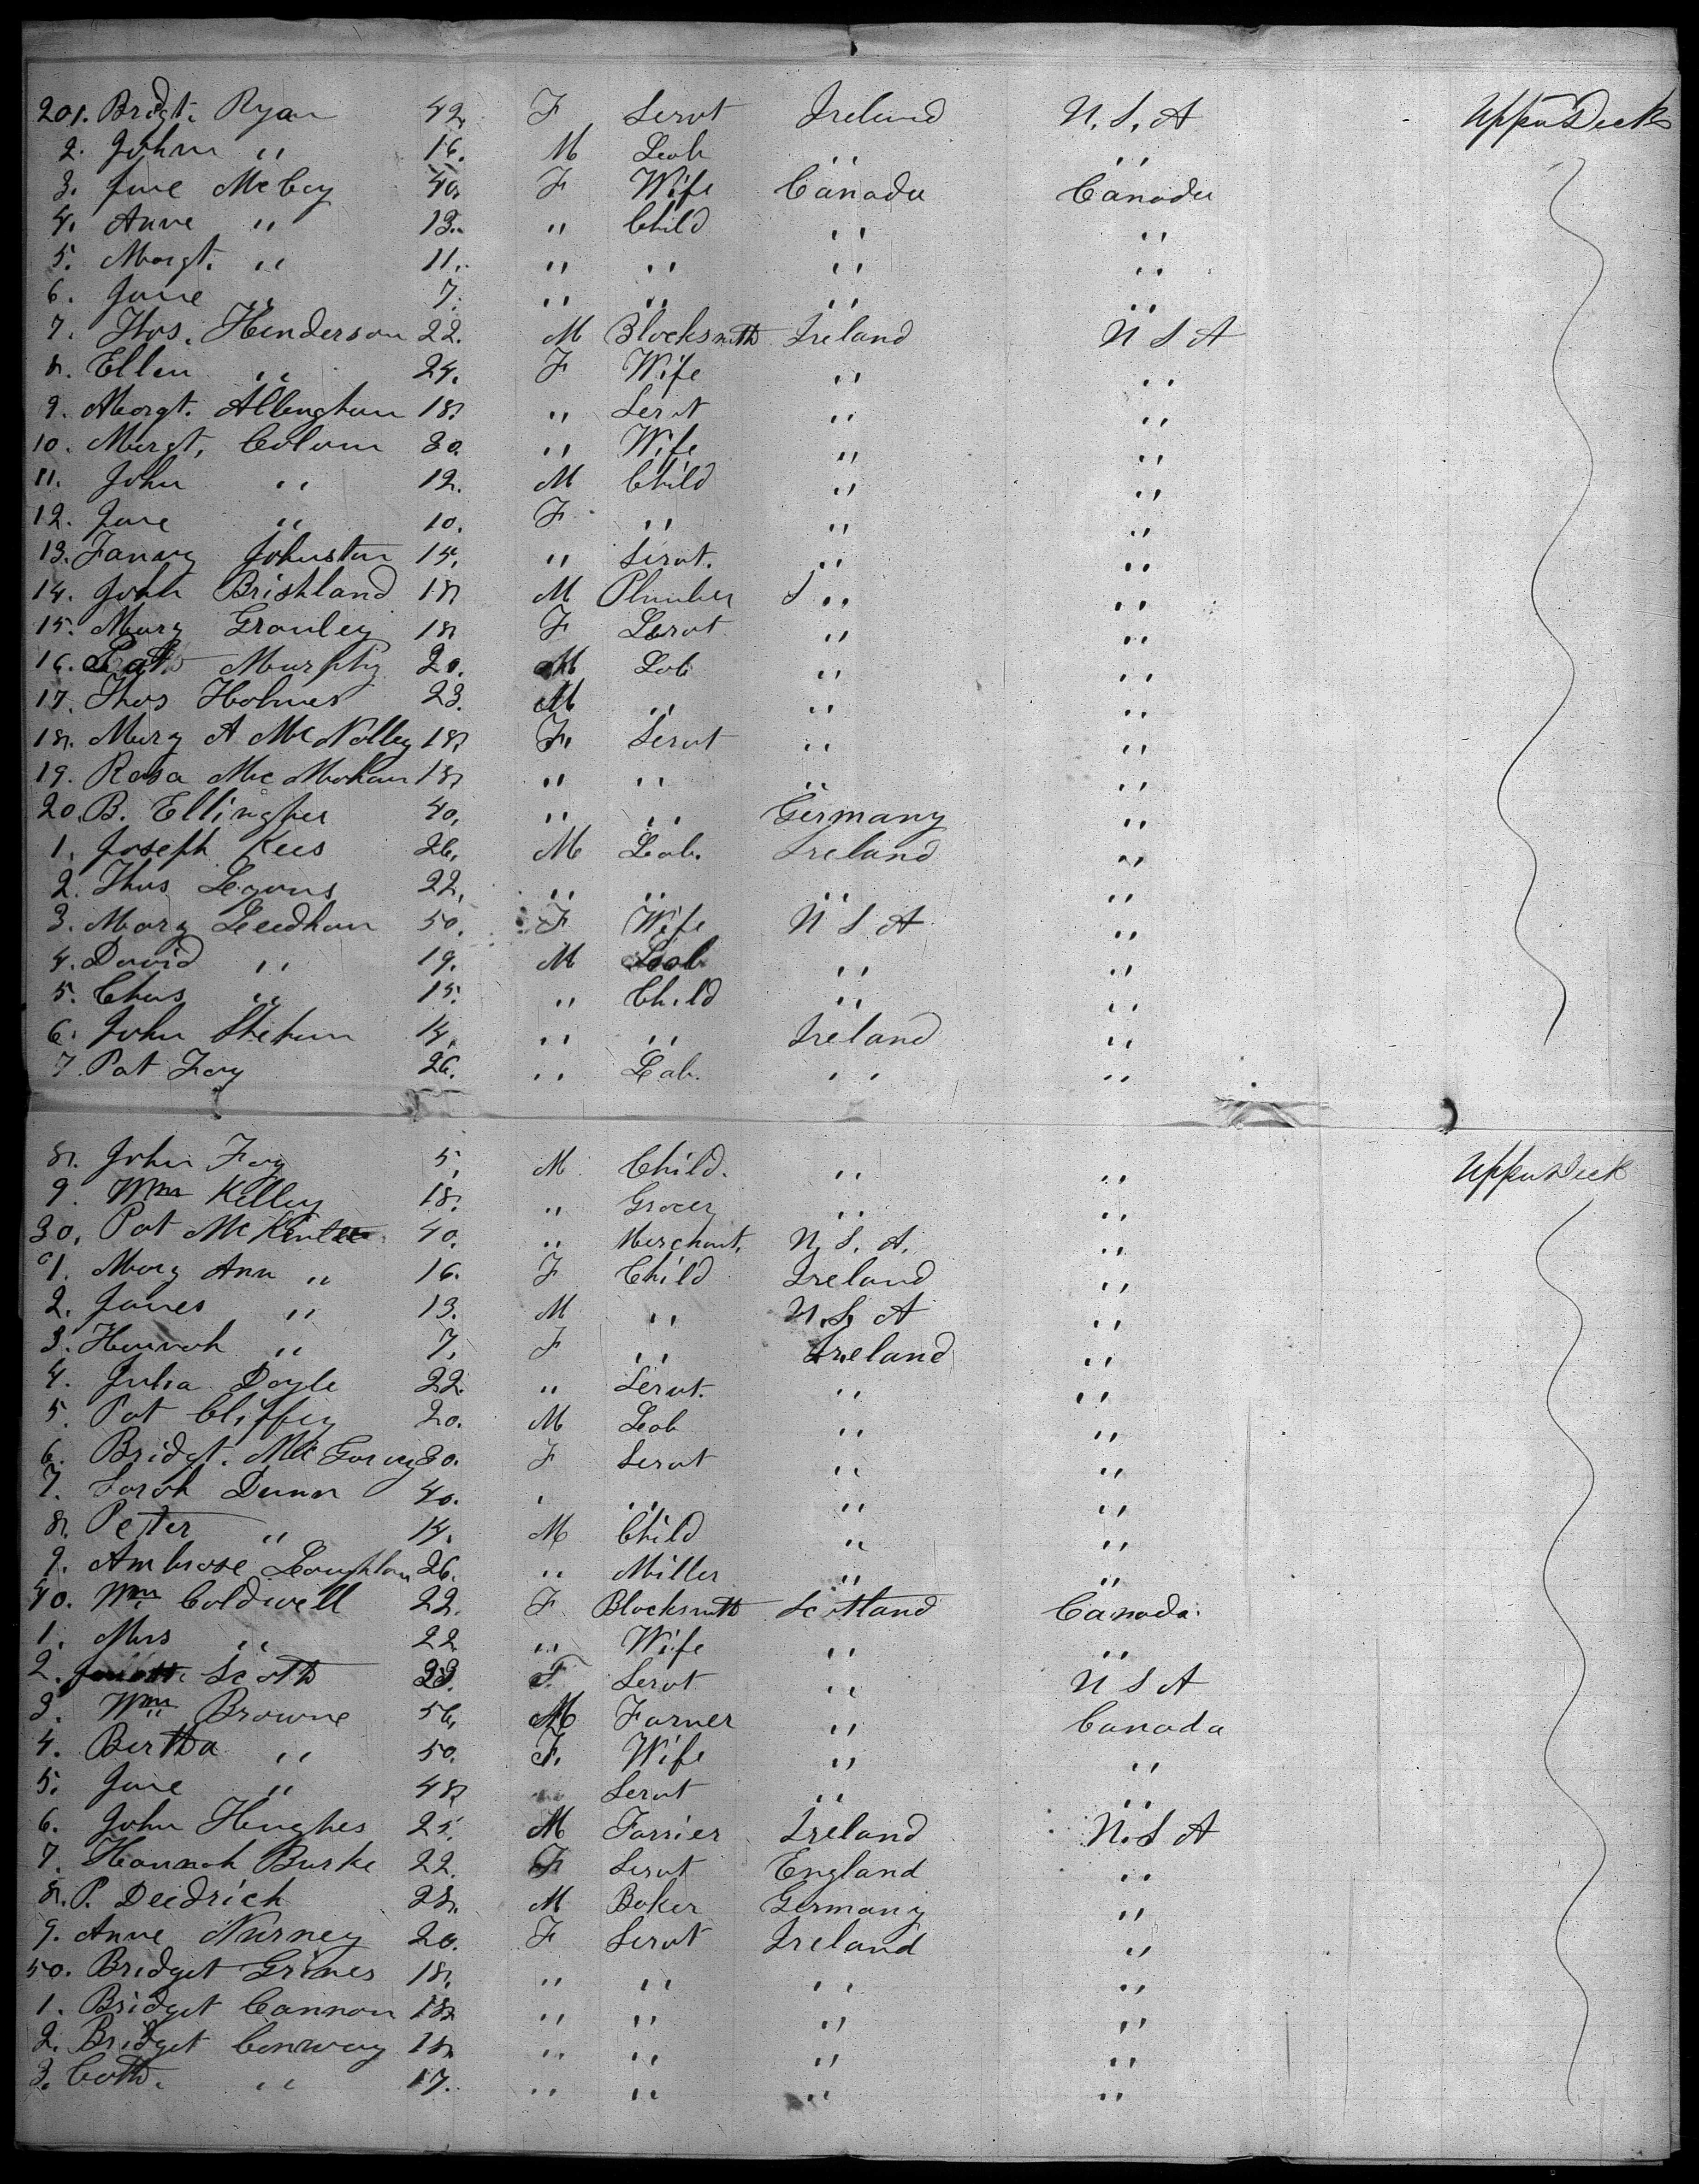 201. Bridgt. Ryan 42. F Servt Ireland U.S.A Upper Deck
2. John " 16. M Lab " "
3. Jane McCoy 40. F Wife Canada Canada
4. Anne " 13. " Child " "
5. Margt. " 11. " " " "
6. Jane " 7. " " " "
7. Thos. Henderson 22. M Blacksmith Ireland U S A
8. Ellen " 24. F Wife " "
9. Margt. Allengham 18. " Servt " "
10. Margt. 30. " Wife " "
11. John " 12. M Child " "
12. Jane " 10. F " " "
13. Fanny Johnston 15. " Servt. " "
14. John Brishland 18 M Plumber " "
15. Mary 18 F Servt " "
16. Pat. Murphy 20. M Lab " "
17. Thos Holmes 23. M " " "
18. Mary A McNolley 18. F. Servt " "
19. Rosa McMahan 18. " " " "
20. B. Ellingher 40. " " Germany "
1. Joseph Kees 26. M Lab. Ireland "
2. Thos Lyons 22. " " " "
3. Mary Leedham 50. F Wife U S A "
4. David " 19. M Lab " "
5. Chas " 15. " Child " "
6. John 14. " " Ireland "
7. Pat Foy 26. " Lab. " "
8. John Foy 5. M Child. " " Upper Deck
9. Wm Kelley 18. " Grocer " "
30. Pat McKentee 40. " Merchant. U.S.A. "
1. Mary Ann " 16. F Child Ireland "
2. James " 13. M " U.S.A "
3. Hannah " 7. F " Ireland "
4. Julia Doyle 22. " Servt. " "
5. Pat Cliffey 20. M Lab " "
6. Bridgt. Mc 20. F Servt " "
7. Sarah Dunn 40. " " " "
8. Peter " 14. M Child " "
9. Ambrose Loughlan 26. " Miller " "
40. Wm Coldwell 22. F Blacksmith Scotland Canada.
1. Mrs " 22 " Wife " "
2. Scott F. Servt " U S A
3. Wm Browne 56. M Farmer " Canada
4. Bertha " 50. F. Wife " "
5. Jane " 48 " Servt " "
6. John Hughes 25. M Farrier Ireland U.S A
7. Hannah Burke 22. F Servt England "
8. P. Deedrich 28. M Baker Germany "
9. Anne Nurney 20. F Servt Ireland "
50. Bridget Grimes 18. " " " "
1. Bridget Cannon 18 " " " "
2. Bridget Conway 18. " " " "
3. Cath. " 17. " " " "